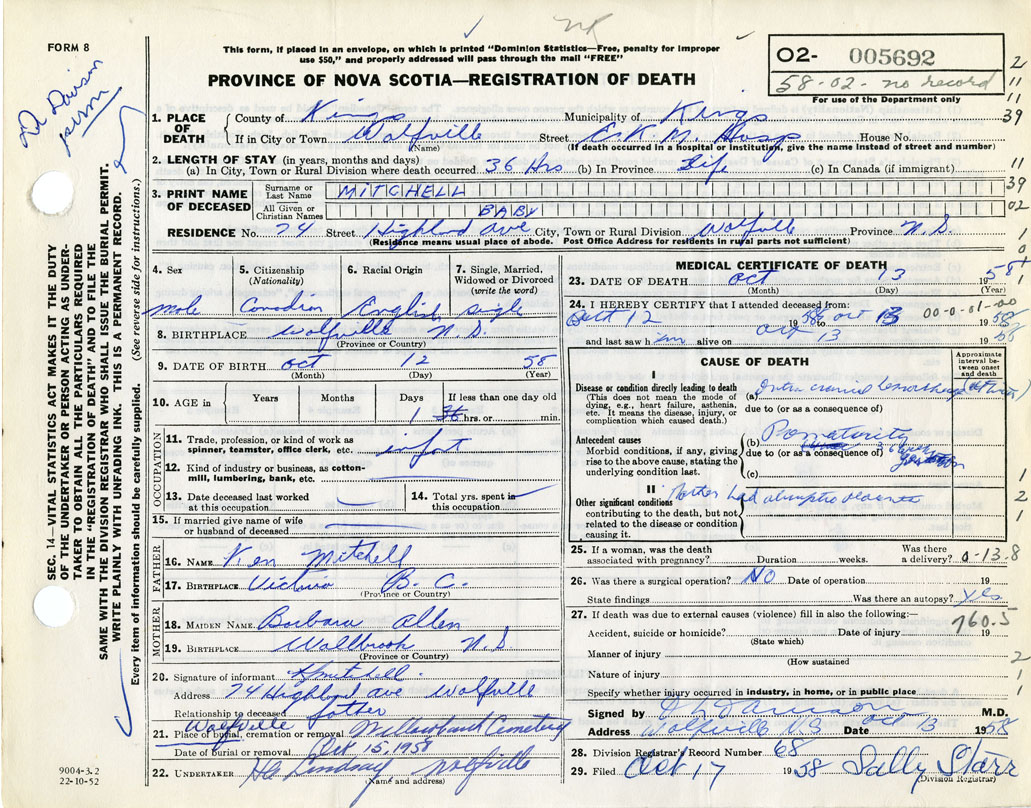 FORM 8
NR
This form, if placed in an envelope, on which is printed “Dominion Statistics—Free, penalty for improper
use $50,” and properly addressed will pass through the mail “FREE”
PROVINCE OF NOVA SCOTIA—REGISTRATION OF DEATH
02- 005692
58-02-no record
For use of the Department only
2
11
11
39
Dr Davison
1. PLACE OF DEATH
County of Kings Municipality of Kings
If in City or Town Wolfville Street E.K.M. Hosp House No.
(Name) (If death occurred in a hospital or institution, give the name instead of street and number)
2. LENGTH OF STAY (in years, months and days)
(a) In City, Town or Rural Division where death occurred 36 Hrs (b) In Province Life (c) In Canada (if immigrant)
11
3. PRINT NAME OF DECEASED
Surname or Last Name MITCHELL
39
All Given or Christian Names BABY
02
RESIDENCE No. 74 Street Highland Ave City, Town or Rural Division Wolfville Province N.S.
1
(Residence means usual place of abode. Post Office Address for residents in rural parts not sufficient)
0
SEC. 14—VITAL STATISTICS ACT MAKES IT THE DUTY
OF THE UNDERTAKER OR PERSON ACTING AS UNDER-
TAKER TO OBTAIN ALL THE PARTICULARS REQUIRED
IN THE “REGISTRATION OF DEATH” AND TO FILE THE
SAME WITH THE DIVISION REGISTRAR WHO SHALL ISSUE THE BURIAL PERMIT.
WRITE PLAINLY WITH UNFADING INK. THIS IS A PERMANENT RECORD.
Every item of information should be carefully supplied. (See reverse side for instructions.)
4. Sex
male
5. Citizenship
(Nationality)
Canadian
6. Racial Origin
English
7. Single, Married,
Widowed or Divorced
(write the word)
single
8. BIRTHPLACE Wolfville N.S.
(Province or Country)
9. DATE OF BIRTH Oct 12 58
(Month) (Day) (Year)
10. AGE in
Years Months Days If less than one day
1 hrs. or min.
OCCUPATION
11. Trade, profession, or kind of work as
spinner, teamster, office clerk, etc. infant
12. Kind of industry or business, as cotton-
mill, lumbering, bank, etc.
13. Date deceased last worked
at this occupation
14. Total yrs. spent in
this occupation.
15. If married give name of wife
or husband of deceased
FATHER
16. NAME Ken Mitchell
17. BIRTHPLACE Victoria B.C.
(Province or Country)
MOTHER
18. MAIDEN NAME Barbara Allen
19. BIRTHPLACE Wallbrook N.S
(Province or Country)
20. Signature of informant K Mitchell
Address 74 Highland Ave Wolfville
Relationship to deceased father
21. Place of burial, cremation or removal Wolfville Cemetery
Date of burial or removal Oct 15, 1958
22. UNDERTAKER HA Lindsay Wolfville
(Name and address)
9004-3.2
22-10-52
MEDICAL CERTIFICATE OF DEATH
23. DATE OF DEATH Oct 13 58
(Month) (Day) (Year)
1
24. I HEREBY CERTIFY that I attended deceased from:
00-0-01-00
Oct 12 1958 to Oct 13 1958
and last saw him alive on Oct 13 1958
CAUSE OF DEATH
Approximate
interval be-
tween onset
and death
I
Disease or condition directly leading to death
(This does not mean the mode of
dying, e.g., heart failure, asthenia,
etc. It means the disease, injury, or
complication which caused death.)
(a) Intra cranial hemorrhage
due to (or as a consequence of)
Antecedent causes
Morbid conditions, if any, giving
rise to the above cause, stating the
underlying condition last.
(b) Prematurity
due to (or as a consequence of)
(c)
1
II
Other significant conditions
contributing to the death, but not
related to the disease or condition
causing it.
Mother had abruptio placenta
2
1
25. If a woman, was the death
associated with pregnancy? Duration weeks. Was there
a delivery?
0-13.8
26. Was there a surgical operation? NO Date of operation 19
State findings Was there an autopsy? yes
27. If death was due to external causes (violence) fill in also the following:—
760.5
Accident, suicide or homicide? Date of injury 19
(State which)
Manner of injury
2
(How sustained
Nature of injury
1
Specify whether injury occurred in industry, in home, or in public place
1
Signed by Davison M.D.
Address Wolfville N.S Date Oct 13 1958
28. Division Registrar's Record Number 68
29. Filed Oct 17 1958 Sally Starr
(Division Registrar)